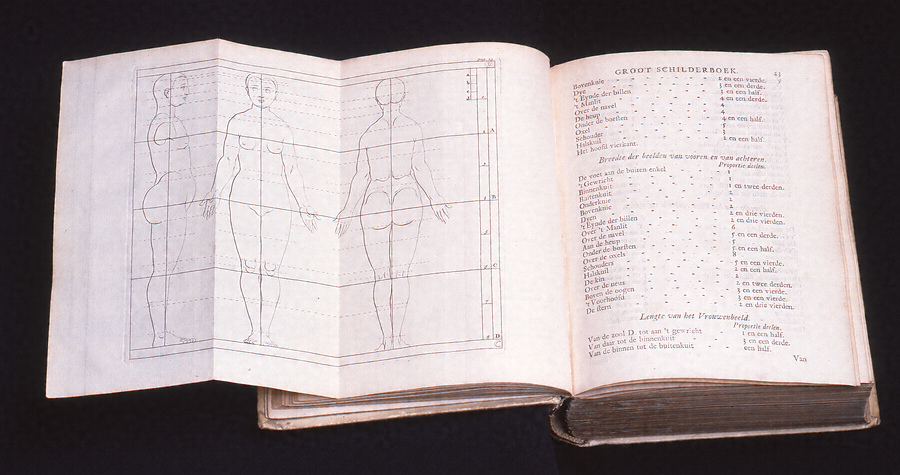 A
B
C
D
GROOT SCHILDERBOEK. 23
Bovenknie - - - - - 2 en een vierde.
Dye - - - - - 3 en een derde.
't Eynde der billen - - - - - 3 en een half.
't Manlit - - - - - 4 en een derde.
Over de navel - - - - - 4
De heup - - - - - 4
Onder de boesten - - - - - 4 en een half.
Oxel - - - - - 5
Schouder - - - - - 3
Halskuil - - - - - 1 en een half.
Het hoofd vierkant.
Breedte der beelden van vooren en van achteren.
Proportie deelen.
De voet aan de buiten enkel - - 1
't Gewricht - - - - - 1
Binnenkuit - - - - - 1 en twee derden.
Buitenkuit - - - - - 2
Onderknie - - - - - 2
Bovenknie - - - - - 2
Dyen - - - - - 2 en drie vierden.
't Eynde der billen - - - - - 2 en drie vierden.
Over 't Manlit - - - - - 6
Over de navel - - - - - 5 en een derde.
Aan de heup - - - - - 5
Onder de boesten - - - - - 5 en een half.
Over de oxels - - - - - 8
Schouders - - - - - 5 en een vierde.
Halskuil - - - - - 2 en een half.
De kin - - - - - 2
Over de neus - - - - - 2 en twee derden.
Boven de oogen - - - - - 3 en een vierde.
't Voorhoofd - - - - - 3 en een vierde.
De stern - - - - - 2 en drie vierden.
Lengte van het Vrouwenbeeld.
Proportie deelen.
Van de zool D. tot aan 't gewricht - - 1 en een half.
Van daar tot de binnenkuit - - 3 en een derde.
Van de binnen tot de buitenkuit - - een half.
Van